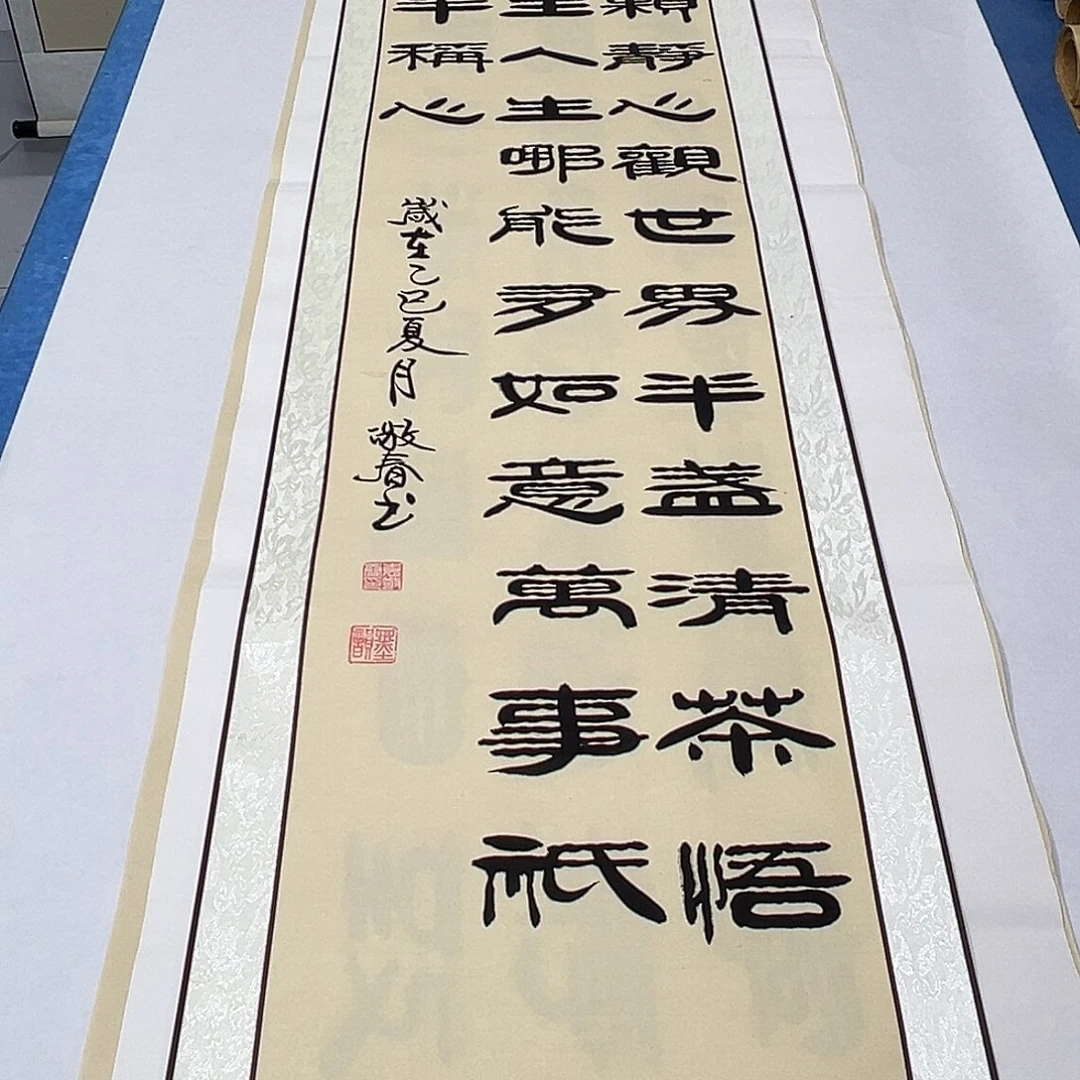 靜心觀世界半盞清茶悟
生人生哪能多如意萬事祇
半稱心
歲在乙巳夏月敬春书